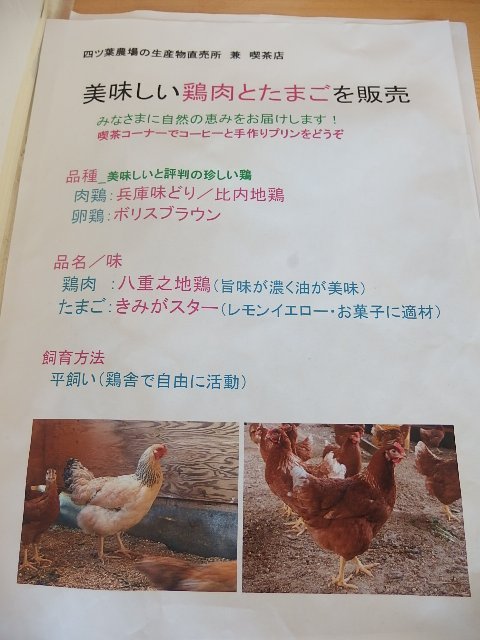 四ツ葉農場の生産物直売所 兼 喫茶店
美味しい鶏肉とたまごを販売
みなさまに自然の恵みをお届けします！
喫茶コーナーでコーヒーと手作りプリンをどうぞ
品種_美味しいと評判の珍しい鶏
肉鶏：兵庫味どり／比内地鶏
卵鶏：ボリスブラウン
品名／味
鶏肉 ：八重之地鶏（旨味が濃く油が美味）
たまご：きみがスター（レモンイエロー・お菓子に適材）
飼育方法
平飼い（鶏舎で自由に活動）